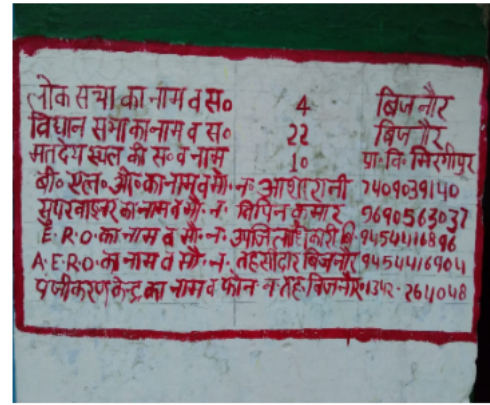 लोक सभा का नाम व स० 4 बिजनौर
विधान सभा का नाम व स० 22 बिजनौर
मतदेय स्थल की स० व नाम 10 प्रा० वि० मिरगीपुर
बी० एल० ओ० का नाम व मो० न० आशा रानी 7409039140
सुपरवाइजर का नाम व मो० न० विपिन कुमार 9690563037
E.R.O. का नाम व मो० न० उपजिलाधिकारी बि० 9454416896
A.E.R.O. का नाम व मो० न० तहसीदार बिजनौर 9454416904
पंजीकरण केन्द्र का नाम व फोन न० तह० बिजनौर 01342-264048